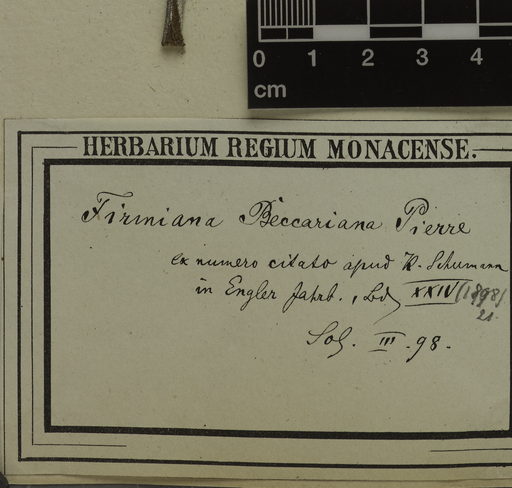 0 1 2 3 4
cm
HERBARIUM REGIUM MONACENSE.
Firmiana Beccariana Pierre
ex numero citato apud K. Schumann
in Engler Jahrb., Bd XXIV (1898)
21.
Sol. III. 98.